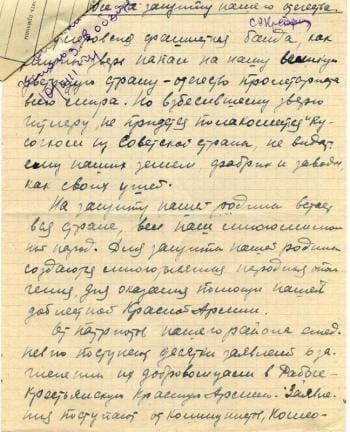 Все на защиту нашего отечества.
фашистская банда, как
зверь напал на нашу великую
страну - отечество пролетариата
всего мира. Но взбесившемуся зверю
гитлеру, не придется полакомится "ку-
сочком" из Советской страны, не видать
ему наших земель, фабрик и заводов
как своих ушей.
На защиту нашей родины встает
вся страна, весь наш многомиллион-
ный народ. Для защиты нашей родины
создаются многочисленная народная опол-
чения, для оказания помощи нашей
доблестной Красной Армии.
От патриотов нашего района ежед-
невно поступают десятки заявлений о за-
числении их добровольцами в Рабоче-
Крестьянскую Красную Армию. Заявле-
ния поступают от Коммунистов, Комсо-